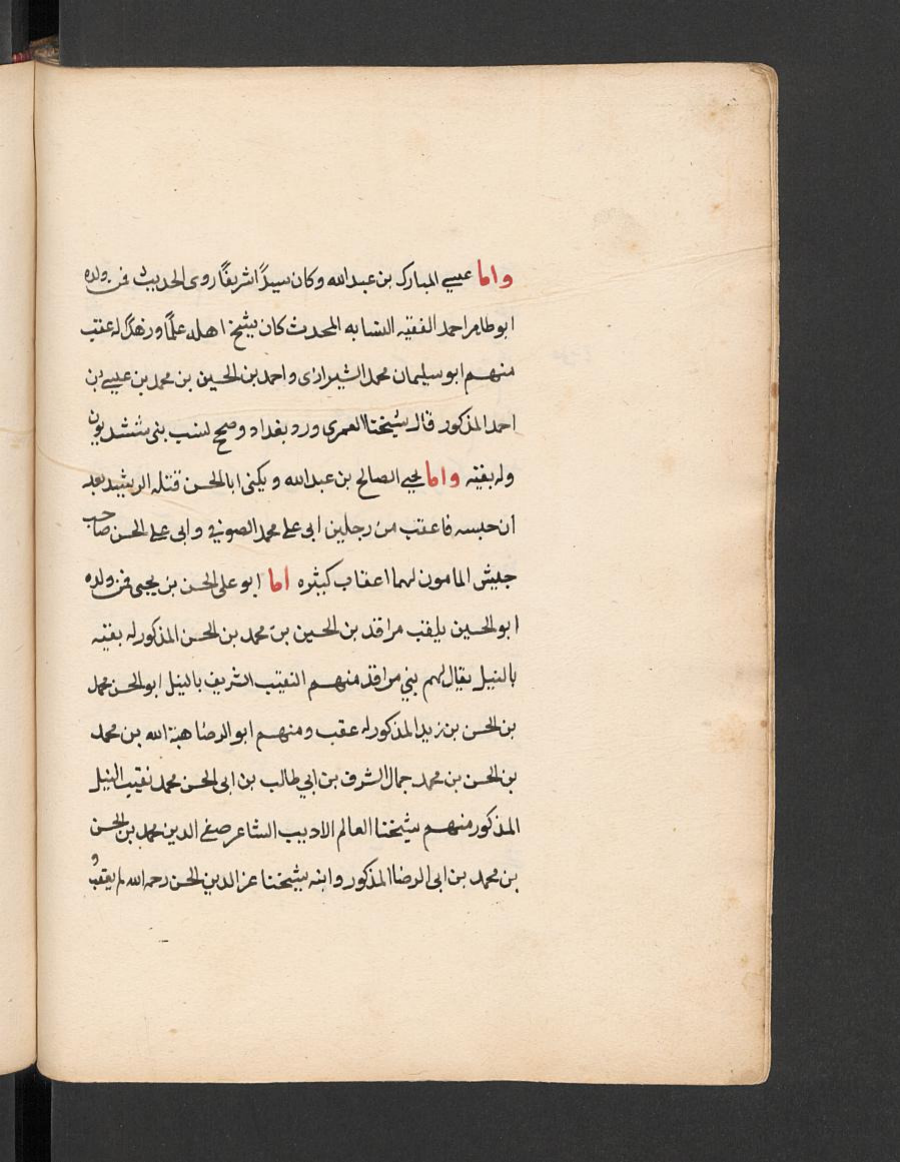 واما عيسے المبارك بن عبدالله وكان سيدًا شريفًا روى الحديث فمن ولده
ابو طاهر احمد الفقيه النسابه المحدث كان شيخ اهله علمًا وزهدًا له عقب
منهم ابو سليمان محمد الشيرازى و احمد بن الحسين بن محمد بن عيسے بن
احمد المذكور قال شيخنا العمرى ورد بغداد وصح لنسب بنى ششديون
وله بقيه واما يحيے الصالح بن عبدالله ويكنى ابا الحسن قتله الرشيد بعد
أن حبسه فاعقب من رجلين ابى على محمد الصوفي وابى على الحسن صاحب
جيش المامون لهما اعقاب كثيره أما ابو على الحسن بن يحيى فمن ولده
ابو الحسين يلقب مراقد بن الحسين بن محمد بن الحسن المذكور له بقيه
بالنيل يقال لهم بني مراقد منهم النقيب الشريف بالنيل ابو الحسن محمد
بن الحسن بن زيد المذكور له عقب ومنهم ابو الرضا هبة الله بن محمد
بن الحسن بن محمد جمال الشرف بن ابي طالب بن ابى الحسن محمد نقيب النيل
المذكور منهم شيخنا العالم الاديب الشاعر صفے الدين محمد بن الحسن
بن محمد بن ابى الرضا المذكور وابنه شيخنا عز الدين الحسن رحمه الله لم يعقب و